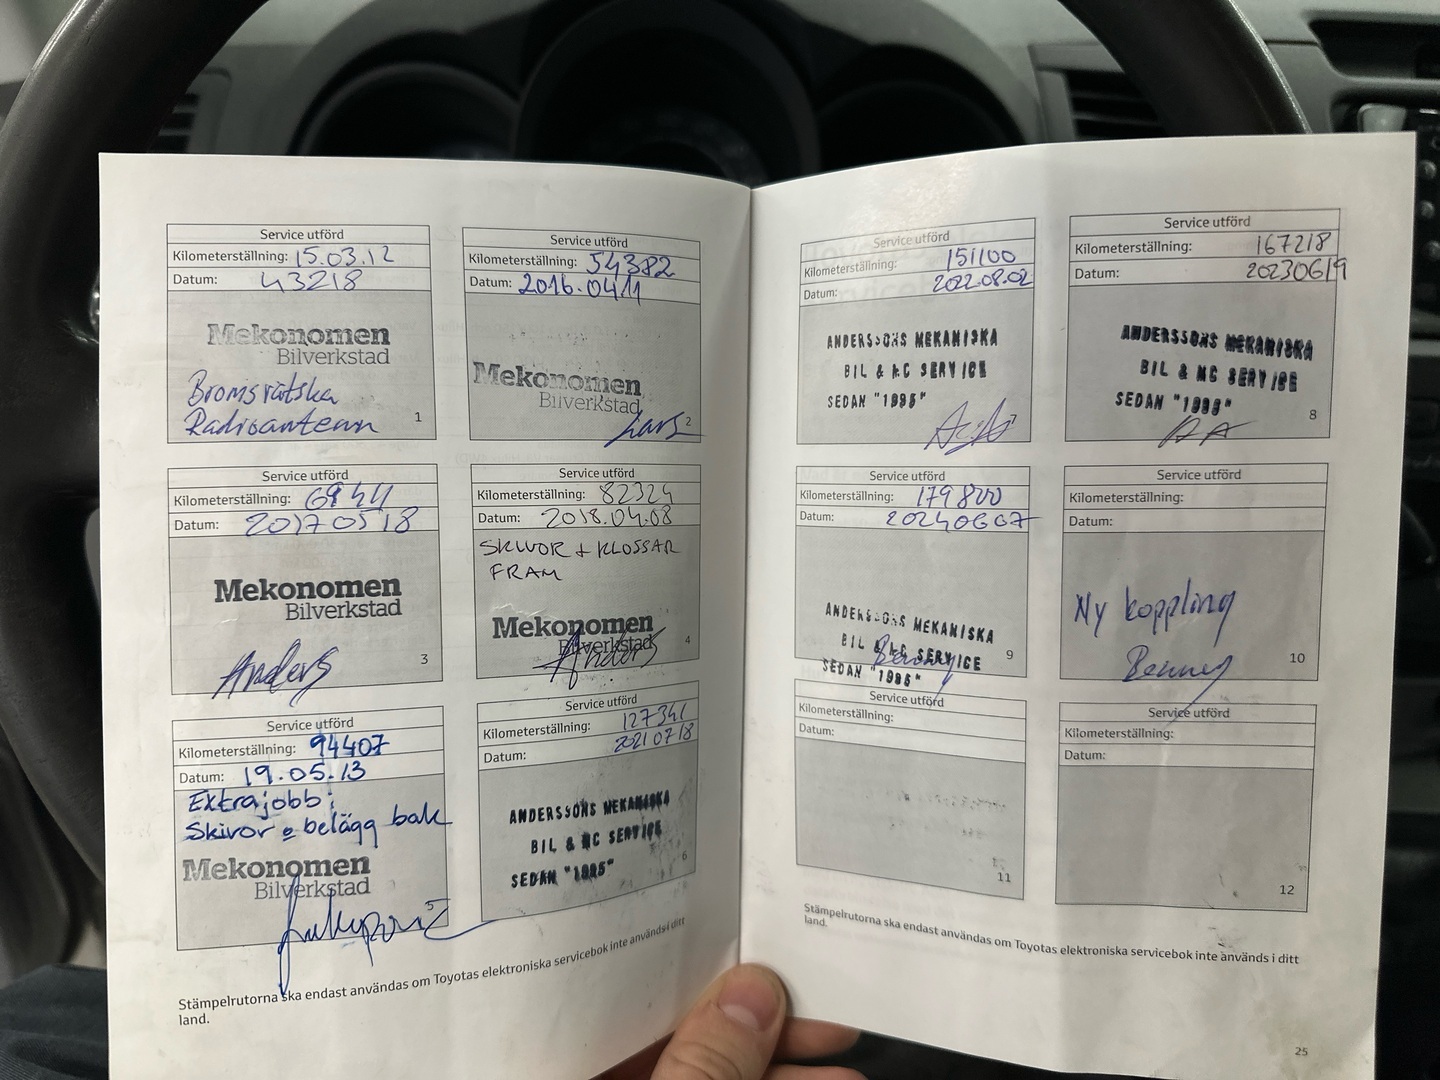 Service utförd
Kilometerställning: 15.03.12
Datum: 43218
Mekonomen
Bilverkstad
Bromsvätska
Radioantenn
1
Service utförd
Kilometerställning: 54382
Datum: 2016.0411
Mekonomen
Bilverkstad
Lars
2
Service utförd
Kilometerställning:
Datum: 20170518
Mekonomen
Bilverkstad
Anders
3
Service utförd
Kilometerställning: 82324
Datum: 2018.04.08
SKIVOR + KLOSSAR
FRAM
Mekonomen
Bilverkstad
Anders
4
Service utförd
Kilometerställning: 94407
Datum: 19.05.13
Extrajobb:
Skivor o belägg bak
Mekonomen
Bilverkstad
5
Service utförd
Kilometerställning: 127341
20210718
Datum:
ANDERSSONS MEKANISKA
BIL & MC SERVICE
SEDAN "1995"
6
Stämpelrutorna ska endast användas om Toyotas elektroniska servicebok inte används i ditt
land.
Service utförd
Kilometerställning: 151100
Datum: 2022.08.02
ANDERSSONS MEKANISKA
BIL & MC SERVICE
SEDAN "1995"
Service utförd
Kilometerställning: 167218
Datum: 20230619
ANDERSSONS MEKANISKA
BIL & MC SERVICE
SEDAN "1995"
AA
8
Service utförd
Kilometerställning: 179800
Datum: 20240607
ANDERSSONS MEKANISKA
BIL & MC SERVICE
SEDAN "1995"
Benny
9
Service utförd
Kilometerställning:
Datum:
Ny koppling
Benny
10
Service utförd
Kilometerställning:
Datum:
11
Service utförd
Kilometerställning:
Datum:
12
Stämpelrutorna ska endast användas om Toyotas elektroniska servicebok inte används i ditt
land.
25